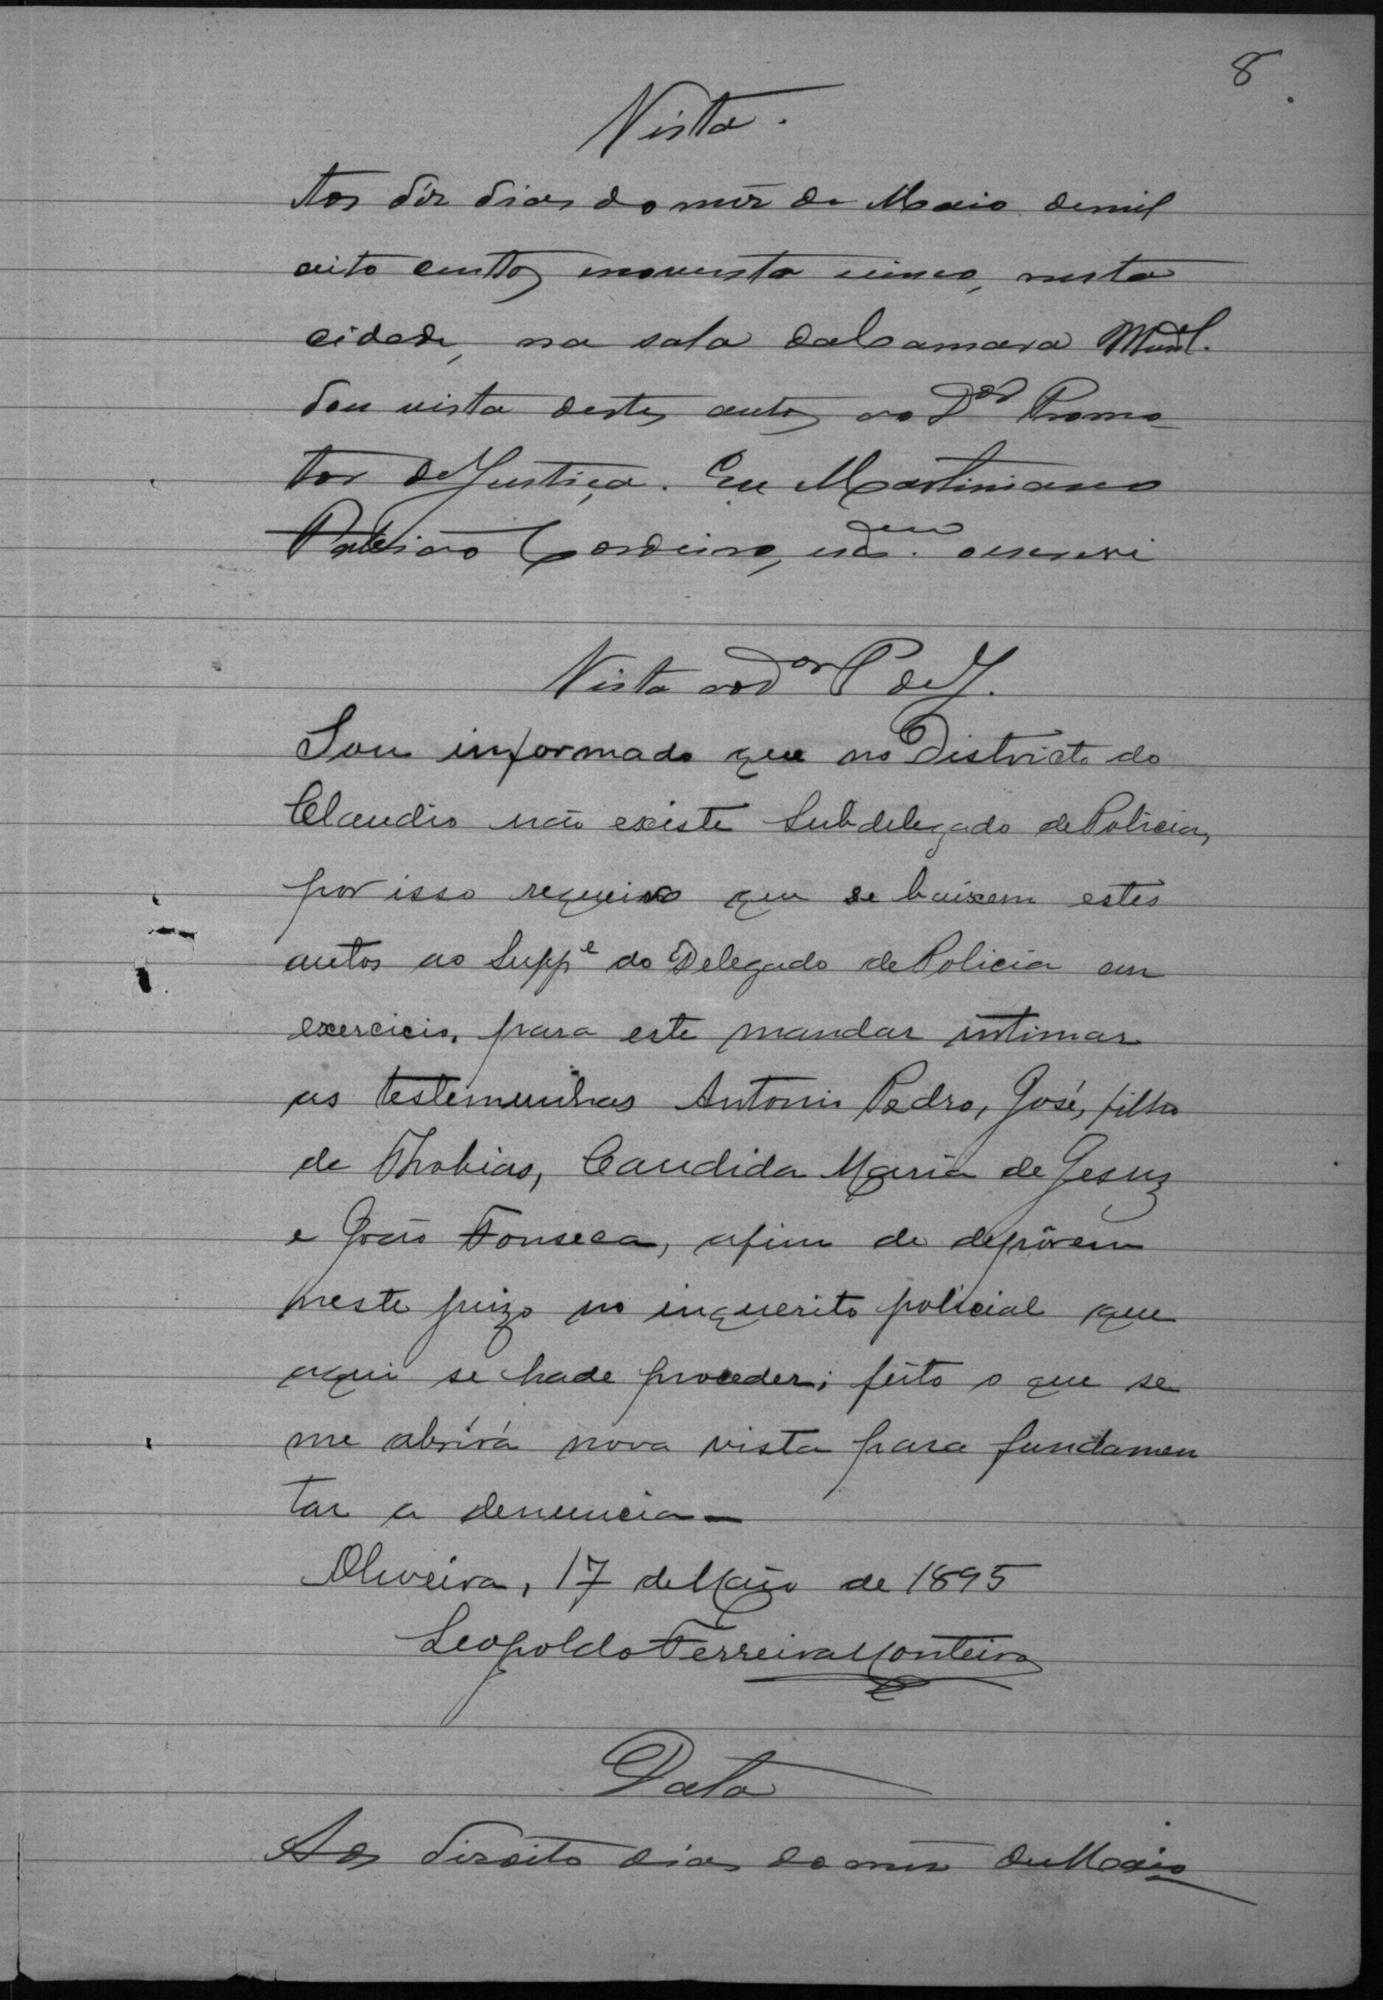 8
Vista.
Aos dez dias do mez de Maio de mil
oito centos e noventa e cinco, nesta
cidade, na sala da Camara Munl.
dou vista destes autos ao Dor Promo-
tor de Justiça. Eu Martiniano
Cordeiro, o escrevi
Vista ao Dor P de J.
Sou informado que no Districto do
Claudio não existe Subdelegado de Policia,
por isso requeiro que se baixem estes
autos ao Suppe do Delegado de Policia em
exercicio, para este mandar intimar
as testemunhas Antonio Pedro, José, filho
de Thobias, Candida Maria de Jesus
e João Fonseca, afim de depôrem
neste juizo no inquerito policial que
aqui se hade proceder; feito o que se
me abrirá nova vista para fundamen
tar a denuncia—
Oliveira, 17 de Maio de 1895
Leopoldo Ferreira Monteiro
Data
Aos dezoito dias do mez de Maio